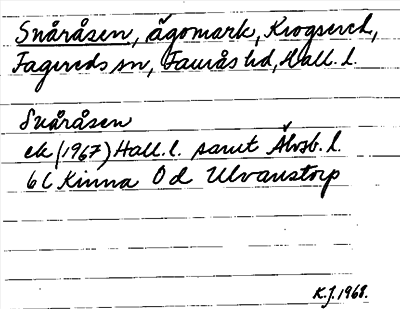 Snåråsen, ägomark, Krogsered,
Fagereds sn, Faurås hd, Hall. l.
Snåråsen
ek (1967) Hall. l. samt Älvsb. l.
6C Kinna 0d Ulvanstorp
K.J. 1968.